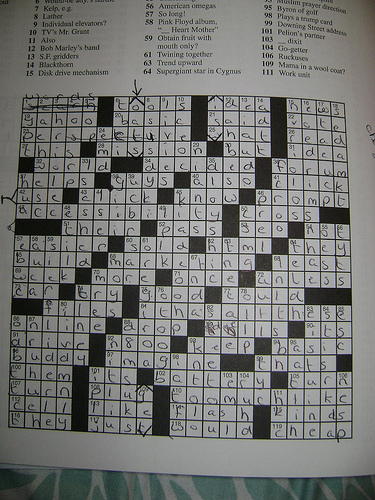 7 Kelp, e.g.
8 Lather
9 Individual elevators?
10 TV's Mr. Grant
11 Also
12 Bob Marley's band
13 S.F. gridders
14 Blackthorn
15 Disk drive mechanism
56 American omegas
57 So long!
58 Pink Floyd album,
"__ Heart Mother"
59 Obtain fruit with
mouth only?
61 Twining together
63 Trend upward
64 Supergiant star in Cygnus
Muslim prayer direction
95 Byron of golf
98 Plays a trump card
99 Downing Street address
101 Pelion's partner
103 __ dixit
104 Go-getter
106 Ruckuses
109 Mama in a wool coat?
111 Work unit
words
yahoo basic and vote
what read
this mission but idea
world decided forum
helps guys also click
use click know prompt
accessibility cross
their pass seo
easier old html they
build marketing east
week more once unless
car try food could
ties that alth
online drop its
drive n800 eep basic
buddy imagine thats
them its battery turn
turn plug too much like
cell like flash kinds
they just would cheap